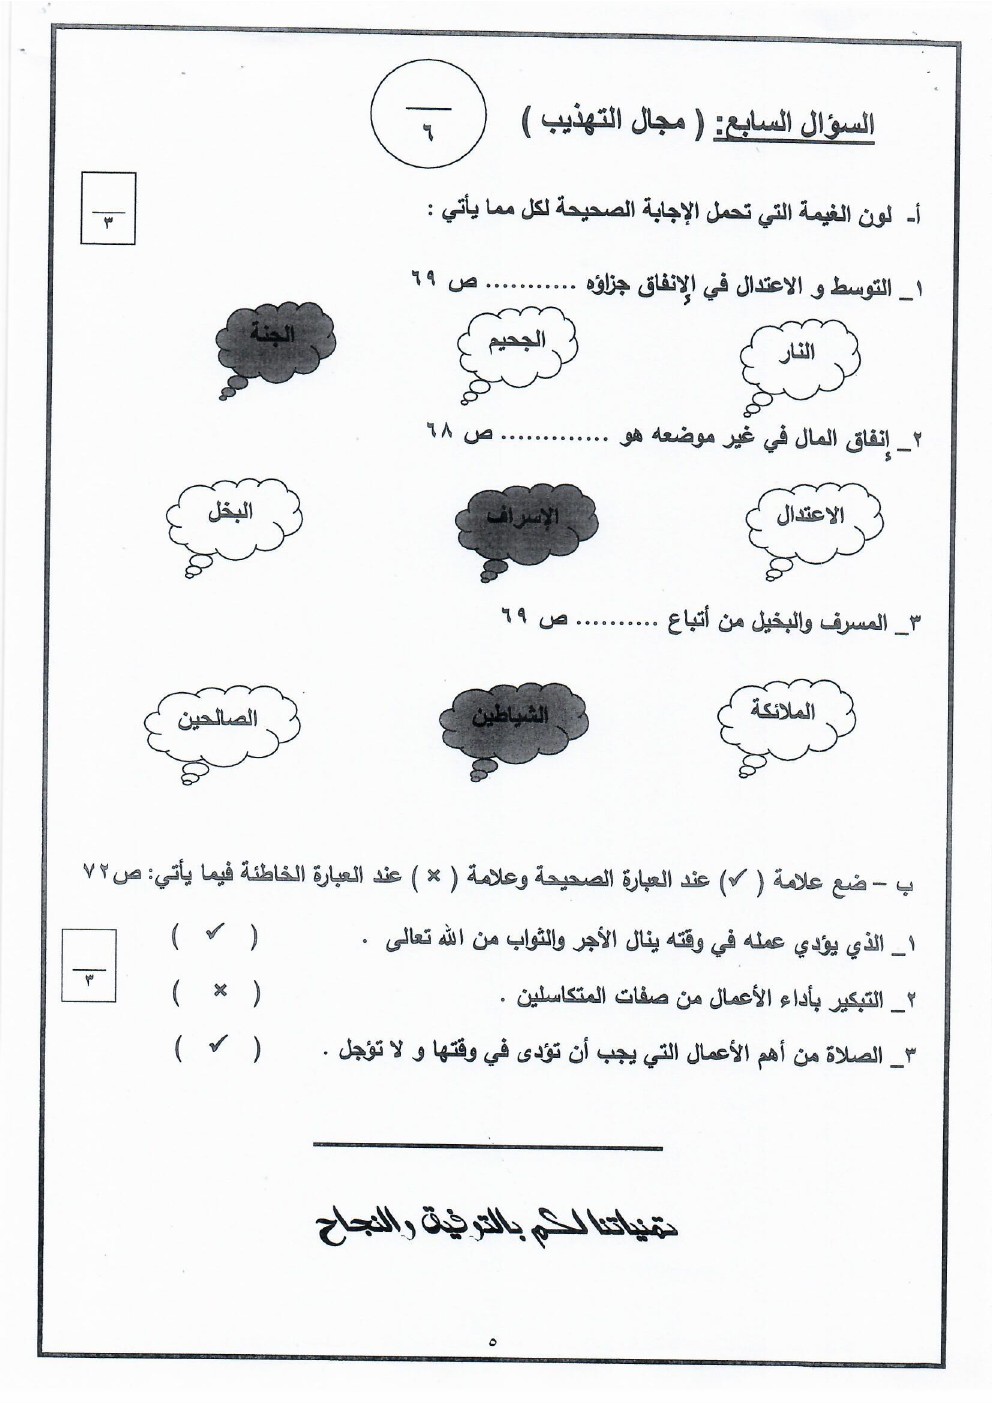 السؤال السابع: ( مجال التهذيب )
٦
أ- لون الغيمة التي تحمل الإجابة الصحيحة لكل مما يأتي :
٣
١_ التوسط و الاعتدال في الإنفاق جزاؤه ........... ص ٦٩
النار الجحيم الجنة
٢_ إنفاق المال في غير موضعه هو ............. ص ٦٨
الاعتدال الإسراف البخل
٣_ المسرف والبخيل من أتباع .......... ص ٦٩
الملائكة الشياطين الصالحين
ب – ضع علامة ( ✓ ) عند العبارة الصحيحة وعلامة ( × ) عند العبارة الخاطئة فيما يأتي: ص٧٢
١_ الذي يؤدي عمله في وقته ينال الأجر والثواب من الله تعالى . ( ✓ )
٣
٢_ التبكير بأداء الأعمال من صفات المتكاسلين . ( × )
٣_ الصلاة من أهم الأعمال التي يجب أن تؤدى في وقتها و لا تؤجل . ( ✓ )
تمنياتنا لكم بالتوفيق والنجاح
٥